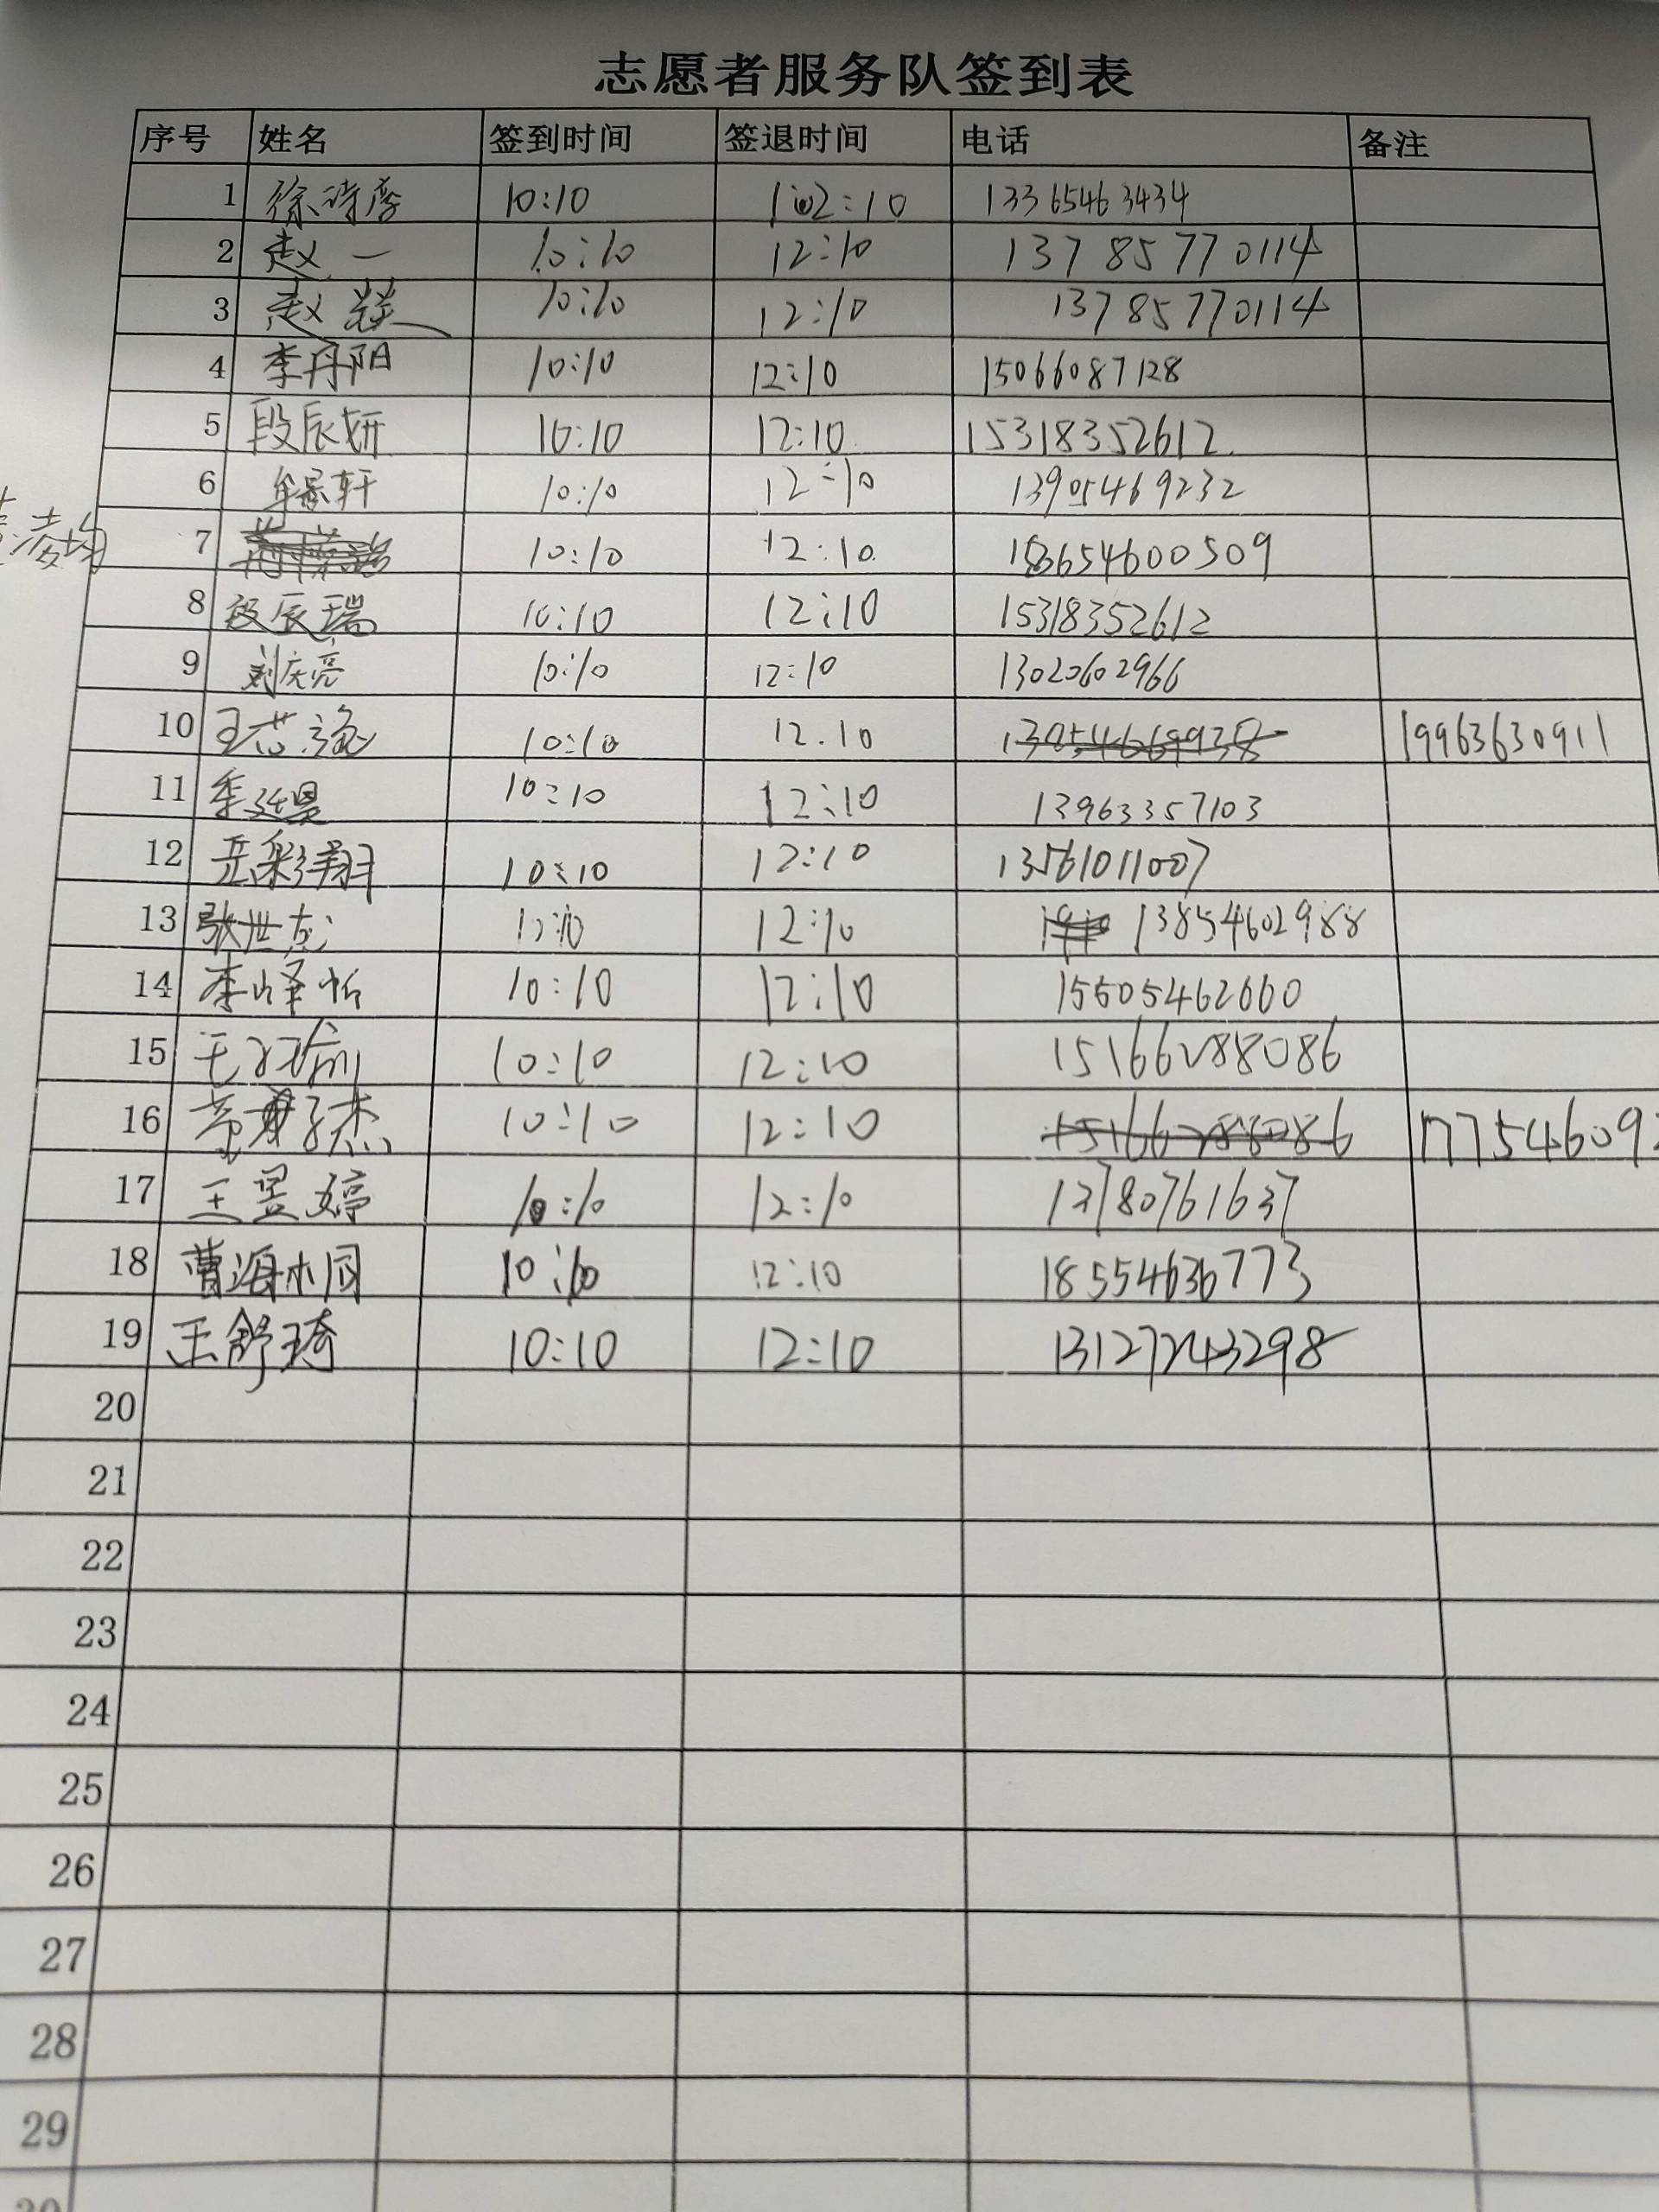 志愿者服务队签到表
序号 姓名 签到时间 签退时间 电话 备注
1 徐诗 10:10 12:10 13365463434
2 赵一 10:10 12:10 13785770114
3 赵 10:10 12:10 13785770114
4 李丹阳 10:10 12:10 15066087128
5 段辰妍 10:10 12:10 15318352612
6 牟景轩 10:10 12:10 13905469232
凌均 7 10:10 12:10 18654600509
8 段辰瑞 10:10 12:10 15318352612
9 刘庆亮 10:10 12:10 13020602966
10 王芯 10:10 12.10 19963630911
11 季延昊 10:10 12:10 13963357103
12 彩翔 10:10 12:10 13561011007
13 张世 12:10 13854602988
14 李峄怡 10:10 12:10 15505462660
15 王 10:10 12:10 15166288086
16 子杰 10:10 12:10 177546092
17 王昱婷 10:10 12:10 13780761637
18 曹海桐 10:10 12:10 18554636773
19 王舒琦 10:10 12:10 13127243298
20
21
22
23
24
25
26
27
28
29